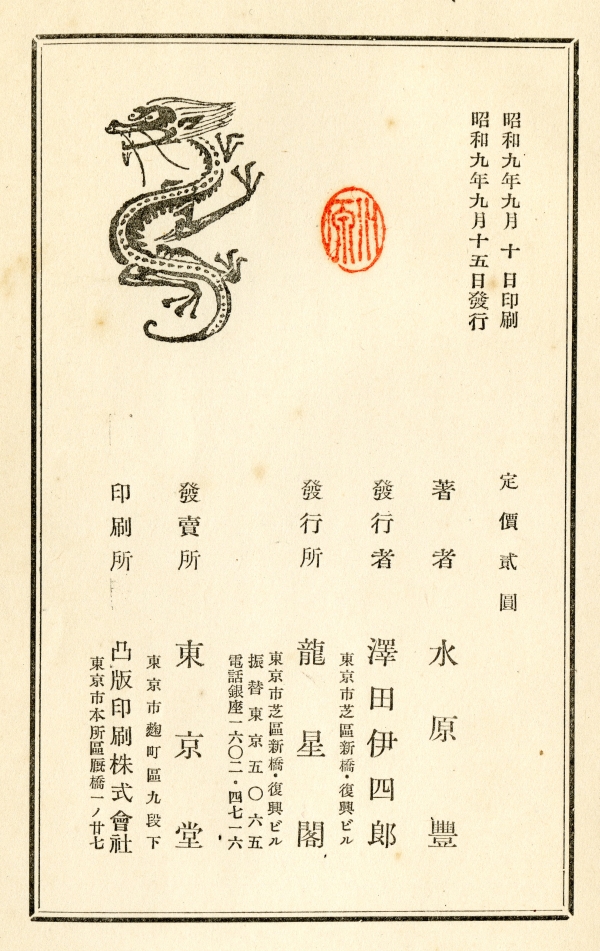 昭和九年九月十日印刷
昭和九年九月十五日發行
水原
定價貳圓
著者 水原豐
發行者 澤田伊四郎
東京市芝區新橋・復興ビル
發行所 龍星閣
東京市芝區新橋・復興ビル
振替東京五〇六五
電話銀座一六〇二・四七一六
發賣所 東京堂
東京市麴町區九段下
印刷所 凸版印刷株式會社
東京市本所區厩橋一ノ廿七